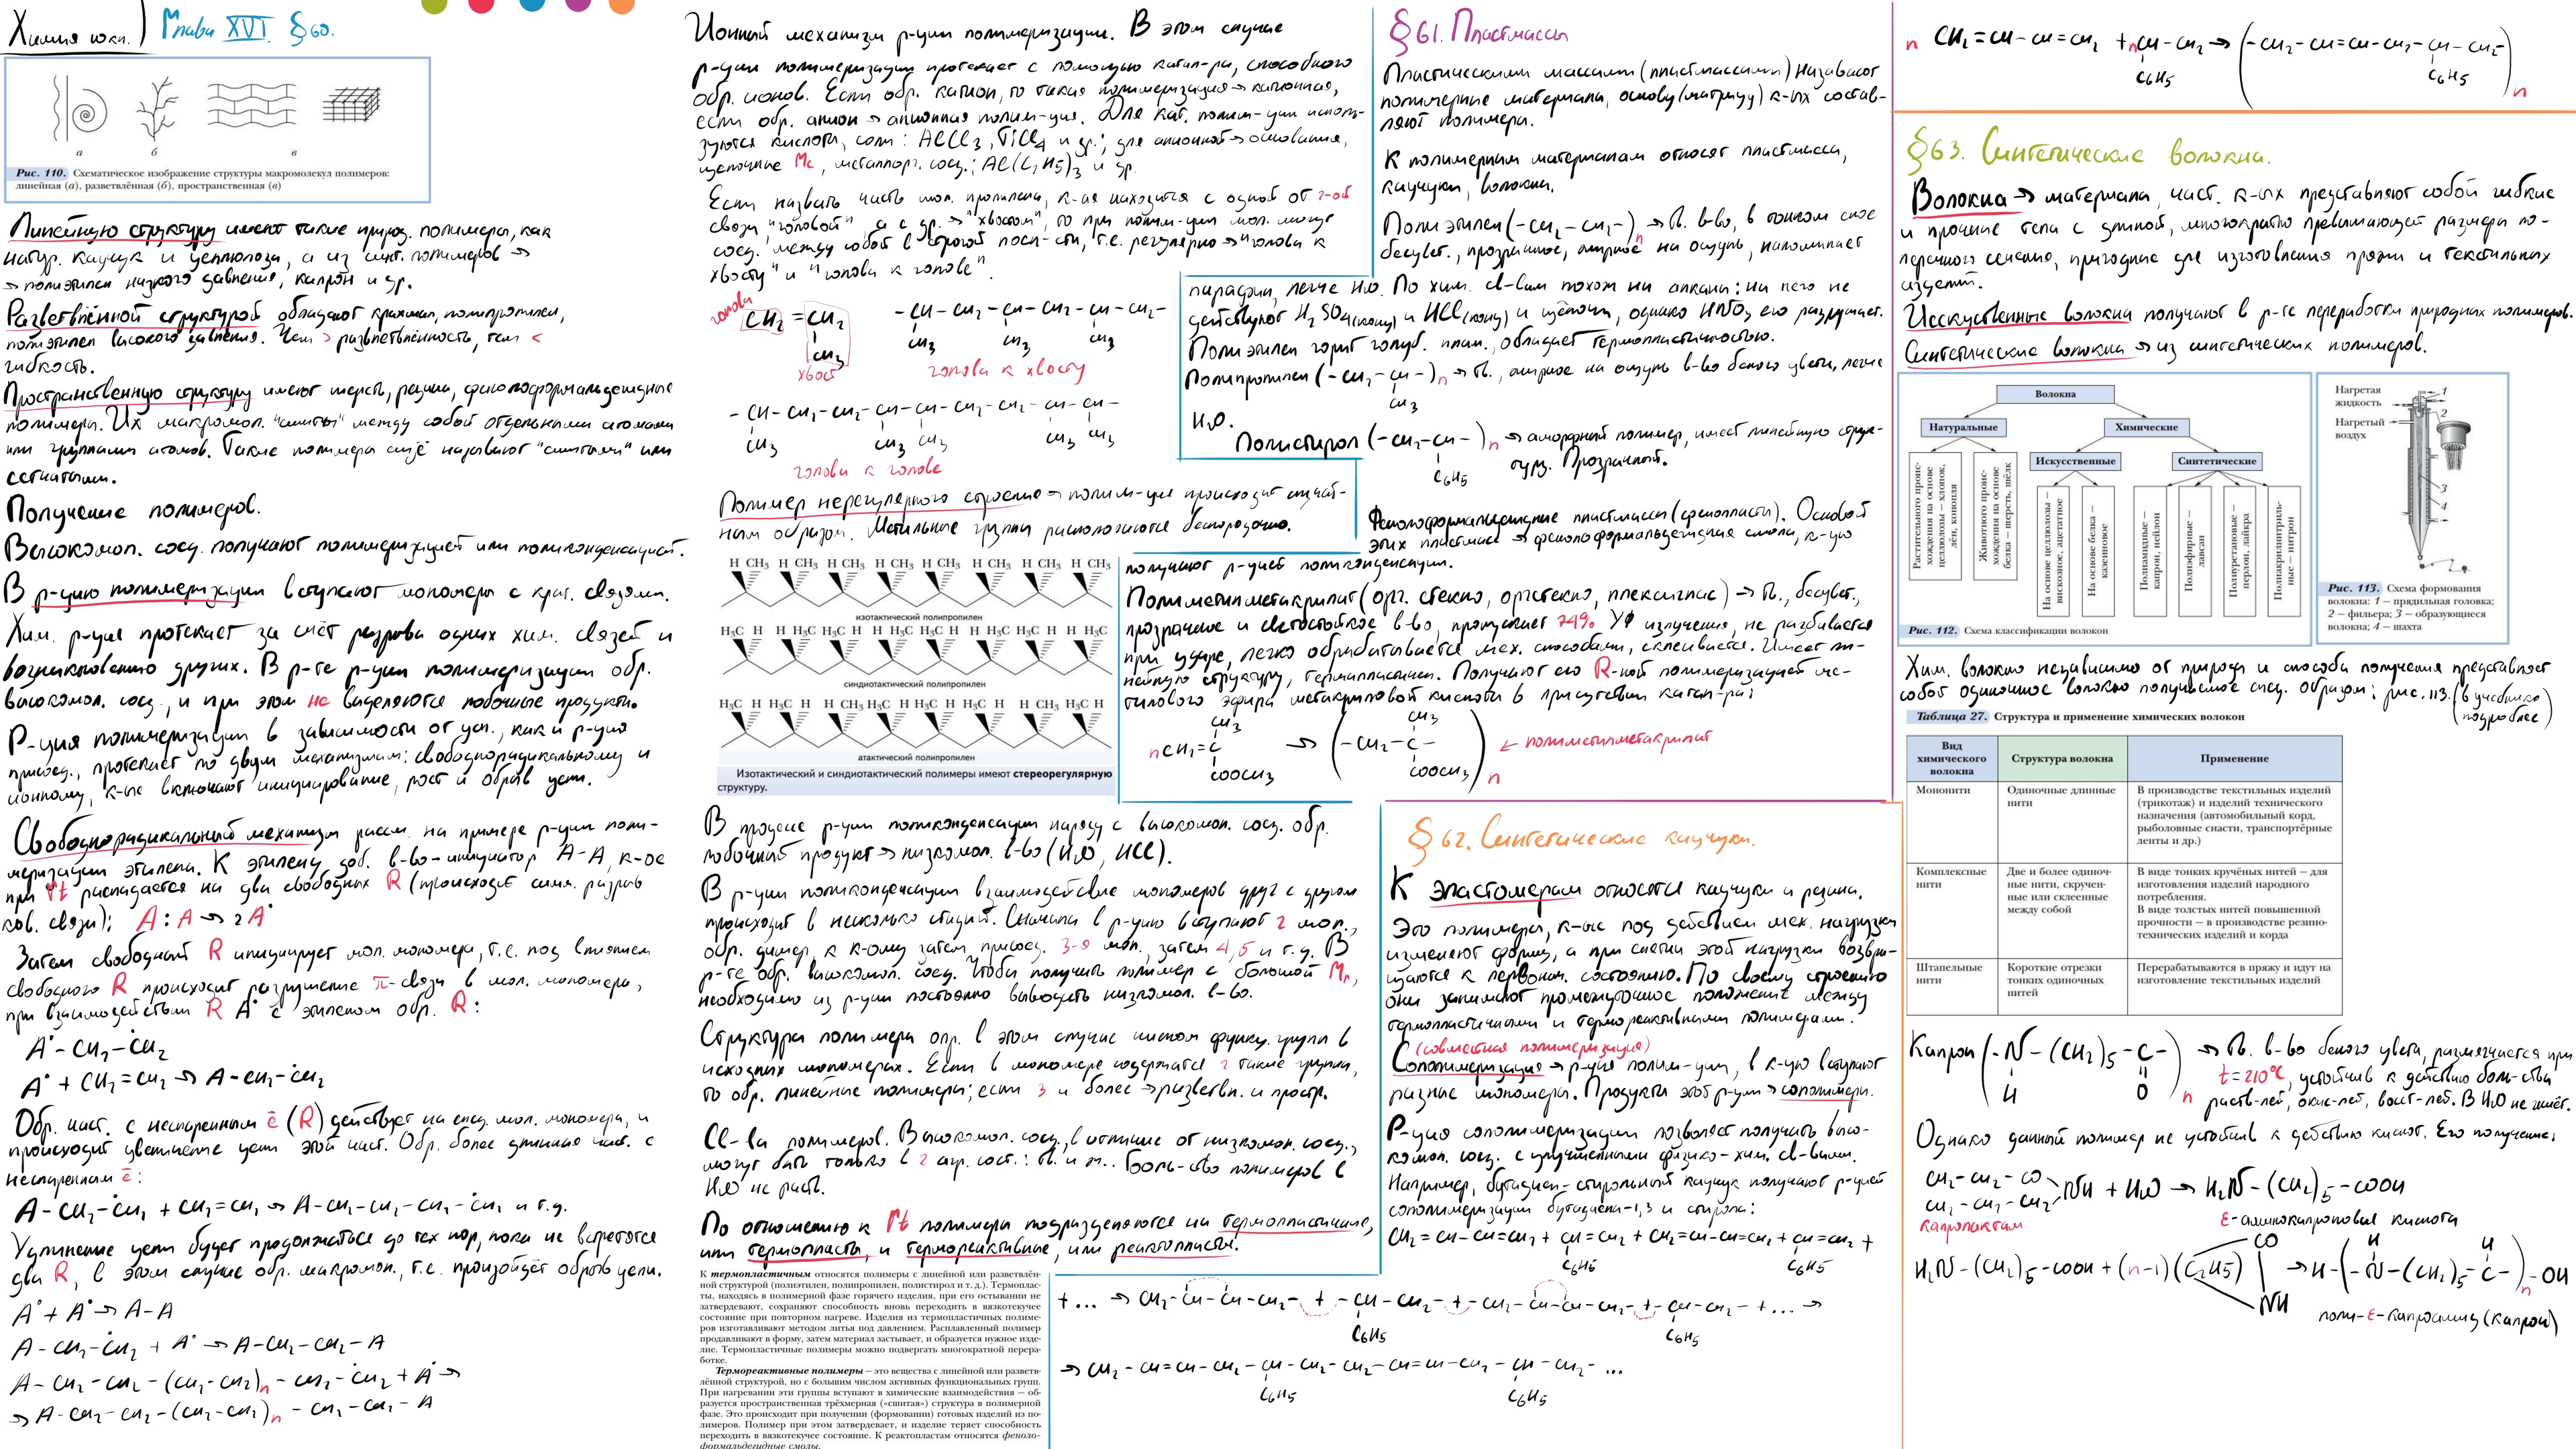 Химия 10кл. Глава XVI § 60.
а б в
Рис. 110. Схематическое изображение структуры макромолекул полимеров:
линейная (а), разветвлённая (б), пространственная (в)
Линейную структуру имеют такие природ. полимеры, как
натур. каучук и целлюлоза, а из синт. полимеров →
→ полиэтилен низкого давления, капрон и др.
Разветвлённой структурой обладают крахмал, полипропилен,
полиэтилен высокого давления. Чем > разветвлённость, тем <
гибкость.
Пространственную структуру имеют шерсть, резина, фенолоформальдегидные
полимеры. Их макромол. "сшиты" между собой отдельными атомами
или группами атомов. Такие полимеры ещё называют "сшитыми" или
сетчатыми.
Получение полимеров.
Высокомол. соед. получают полимеризацией или поликонденсацией.
В р-цию полимеризации вступают мономеры с крат. связями.
Хим. р-ция протекает за счёт разрыва одних хим. связей и
возникновению других. В р-те р-ции полимеризации обр.
высокомол. соед., и при этом не выделяются побочные продукты.
Р-ция полимеризации в зависимости от усл., как и р-ция
присоед., протекает по двум механизмам: свободнорадикальному и
ионному, к-ые включают инициирование, рост и обрыв цепи.
Свободнорадикальный механизм рассм. на примере р-ции поли-
меризации этилена. К этилену доб. в-во-инициатор A-A, к-ое
при ↑t распадается на два свободных R (происходит симм. разрыв
ков. связи): A:A → 2A•
Затем свободный R инициирует мол. мономера, т.е. под влиянием
свободного R происходит разрушение π-связи в мол. мономера,
при взаимодействии R A• с этиленом обр. R:
A•-CH₂-ĊH₂
A• + CH₂=CH₂ → A-CH₂-ĊH₂
Обр. част. с неспаренным ē (R) действует на след. мол. мономера, и
происходит увеличение цепи этой част. Обр. более длинная част. с
неспаренным ē:
A-CH₂-ĊH₂ + CH₂=CH₂ → A-CH₂-CH₂-CH₂-ĊH₂ и т.д.
Удлинение цепи будет продолжаться до тех пор, пока не встретятся
два R, в этом случае обр. макромол., т.е. произойдёт обрыв цепи.
A• + A• → A-A
A-CH₂-ĊH₂ + A• → A-CH₂-CH₂-A
A-CH₂-CH₂-(CH₂-CH₂)n-CH₂-ĊH₂ + A• →
→ A-CH₂-CH₂-(CH₂-CH₂)n-CH₂-CH₂-A
Ионный механизм р-ции полимеризации. В этом случае
р-ция полимеризации протекает с помощью катал-ра, способного
обр. ионов. Если обр. катион, то такая полимеризация → катионная,
если обр. анион → анионная полим-ция. Для кат. полим-ции исполь-
зуются кислоты, соли: AlCl₃, TiCl₄ и др.; для анионной → основания,
щелочные Me, металлорг. соед.: Al(C₂H₅)₃ и др.
Если назвать часть мол. пропилена, к-ая находится с одной от 2-ой
связи "головой", а с др. → "хвостом", то при полим-ции мол. могут
соед. между собой в строгой посл-сти, т.е. регулярно → "голова к
хвосту" и "голова к голове".
голова
CH₂=CH₂
CH₃
хвост
-CH-CH₂-CH-CH₂-CH-CH₂-
CH₃ CH₃ CH₃
голова к хвосту
-CH-CH₂-CH₂-CH-CH-CH₂-CH₂-CH-CH-
CH₃ CH₃ CH₃ CH₃ CH₃
голова к голове
Полимер нерегулярного строения → полим-ция происходит случай-
ным образом. Метильные группы располагаются беспорядочно.
H CH₃ H CH₃ H CH₃ H CH₃ H CH₃ H CH₃ H CH₃ H CH₃
изотактический полипропилен
H₃C H H CH₃ H₃C H H CH₃ H₃C H H CH₃ H₃C H H CH₃
синдиотактический полипропилен
H₃C H H₃C H H CH₃ H₃C H H₃C H H CH₃ H₃C H
атактический полипропилен
Изотактический и синдиотактический полимеры имеют стереорегулярную
структуру.
В процессе р-ции поликонденсации наряду с высокомол. соед. обр.
побочный продукт → низкомол. в-во (H₂O, HCl).
В р-ции поликонденсации взаимодействие мономеров друг с другом
происходит в несколько стадий. Сначала в р-цию вступают 2 мол.,
обр. димер, к к-ому затем присоед. 3-я мол., затем 4, 5 и т.д. В
р-те обр. высокомол. соед. Чтобы получить полимер с большой Mr,
необходимо из р-ции постоянно выводить низкомол. в-во.
Структура полимера опр. в этом случае числом функц. групп в
исходных мономерах. Если в мономере содержатся 2 такие группы,
то обр. линейные полимеры; если 3 и более → разветвл. и простр.
Св-ва полимеров. Высокомол. соед., в отличие от низкомол. соед.,
могут быть только в 2 агр. сост.: тв. и ж.. Боль-ство полимеров в
H₂O не раств.
По отношению к ↑t полимеры подразделяются на термопластичные,
или термопласты, и термореактивные, или реактопласты.
К термопластичным относятся полимеры с линейной или разветвлён-
ной структурой (полиэтилен, полипропилен, полистирол и т. д.). Термоплас-
ты, находясь в полимерной фазе горячего изделия, при его остывании не
затвердевают, сохраняют способность вновь переходить в вязкотекучее
состояние при повторном нагреве. Изделия из термопластичных полиме-
ров изготавливают методом литья под давлением. Расплавленный полимер
продавливают в форму, затем материал застывает, и образуется нужное изде-
лие. Термопластичные полимеры можно подвергать многократной перера-
ботке.
Термореактивные полимеры — это вещества с линейной или разветв-
лённой структурой, но с большим числом активных функциональных групп.
При нагревании эти группы вступают в химические взаимодействия — об-
разуется пространственная трёхмерная («сшитая») структура в полимерной
фазе. Это происходит при получении (формовании) готовых изделий из по-
лимеров. Полимер при этом затвердевает, и изделие теряет способность
переходить в вязкотекучее состояние. К реактопластам относятся феноло-
формальдегидные смолы.
§61. Пластмассы
Пластическими массами (пластмассами) называют
полимерные материалы, основу (матрицу) к-ых состав-
ляют полимеры.
К полимерным материалам относят пластмассы,
каучуки, волокна.
Полиэтилен (-CH₂-CH₂-)n → тв. в-во, в тонком слое
бесцвет., прозрачное, жирное на ощупь, напоминает
парафин, легче H₂O. По хим. св-вам похож на алканы: на него не
действуют H₂SO₄(конц) и HCl(конц) и щёлочи, однако HNO₃ его разрушает.
Полиэтилен горит голуб. плам., обладает термопластичностью.
Полипропилен (-CH₂-CH-)n → тв., жирное на ощупь в-во белого цвета, легче
CH₃
H₂O.
Полистирол (-CH₂-CH-)n → аморфный полимер, имеет линейную струк-
C₆H₅ туру. Прозрачный.
Фенолоформальдегидные пластмассы (фенопласты). Основой
этих пластмасс → фенолоформальдегидная смола, к-ую
получают р-цией поликонденсации.
Полиметилметакрилат (орг. стекло, оргстекло, плексиглас) → тв., бесцвет.,
прозрачное и светостойкое в-во, пропускает 74% УФ излучения, не разбивается
при ударе, легко обрабатывается мех. способами, склеивается. Имеет ли-
нейную структуру, термопластичен. Получают его R-ной полимеризацией ме-
тилового эфира метакриловой кислоты в присутствии катал-ра:
CH₃ CH₃
nCH₂=C → (-CH₂-C-)n ← полиметилметакрилат
COOCH₃ COOCH₃
§62. Синтетические каучуки.
К эластомерам относятся каучуки и резина.
Это полимеры, к-ые под действием мех. нагрузки
изменяют форму, а при снятии этой нагрузки возвра-
щаются к первонач. состоянию. По своему строению
они занимают промежуточное положение между
термопластичными и термореактивными полимерами.
(совместная полимеризация)
Сополимеризация → р-ция полим-ции, в к-ую вступают
разные мономеры. Продукты этой р-ции → сополимеры.
Р-ция сополимеризации позволяет получить высо-
комол. соед. с улучшенными физико-хим. св-вами.
Например, бутадиен-стирольный каучук получают р-цией
сополимеризации бутадиена-1,3 и стирола:
CH₂=CH-CH=CH₂ + CH=CH₂ + CH₂=CH-CH=CH₂ + CH=CH₂ +
C₆H₅ C₆H₅
+ ... → CH₂-ĊH-ĊH-CH₂- + -CH-CH₂- + -CH₂-ĊH-ĊH-CH₂- + -CH-CH₂- + ... →
C₆H₅ C₆H₅
→ CH₂-CH=CH-CH₂-CH-CH₂-CH₂-CH=CH-CH₂-CH-CH₂- ...
C₆H₅ C₆H₅
n CH₂=CH-CH=CH₂ + nCH-CH₂ → (-CH₂-CH=CH-CH₂-CH-CH₂-)n
C₆H₅ C₆H₅
§63. Синтетические волокна.
Волокна → материалы, част. к-ых представляют собой гибкие
и прочные тела с длиной, многократно превышающей размеры по-
перечного сечения, пригодные для изготовления пряжи и текстильных
изделий.
Исскуственные волокна получают в р-те переработки природных полимеров.
Синтетические волокна → из синтетических полимеров.
Волокна
Натуральные Химические
Искусственные Синтетические
Растительного проис-
хождения на основе
целлюлозы — хлопок,
лён, конопля
Животного проис-
хождения на основе
белка — шерсть, шёлк
На основе целлюлозы —
вискозное, ацетатное
На основе белка —
казеиновое
Полиамидные —
капрон, нейлон
Полиэфирные —
лавсан
Полиуретановые —
перлон, лайкра
Полиакрилнитриль-
ные — нитрон
Рис. 112. Схема классификации волокон
Нагретая
жидкость
Нагретый
воздух
1
2
3
4
Рис. 113. Схема формования
волокна: 1 — прядильная головка;
2 — фильера; 3 — образующиеся
волокна; 4 — шахта
Хим. волокно независимо от природы и способа получения представляет
собой одиночное волокно получаемое след. образом: рис. 113. (в учебнике
подробнее)
Таблица 27. Структура и применение химических волокон
Вид
химического
волокна
Структура волокна
Применение
Мононити
Одиночные длинные
нити
В производстве текстильных изделий
(трикотаж) и изделий технического
назначения (автомобильный корд,
рыболовные снасти, транспортёрные
ленты и др.)
Комплексные
нити
Две и более одиноч-
ные нити, скручен-
ные или склеенные
между собой
В виде тонких кручёных нитей — для
изготовления изделий народного
потребления.
В виде толстых нитей повышенной
прочности — в производстве резино-
технических изделий и корда
Штапельные
нити
Короткие отрезки
тонких одиночных
нитей
Перерабатываются в пряжу и идут на
изготовление текстильных изделий
Капрон (-N-(CH₂)₅-C-)n → тв. в-во белого цвета, размягчается при
H O
t=210°C, устойчив к действию боль-ства
раств-лей, окис-лей, восст-лей. В H₂O не гниёт.
Однако данный полимер не устойчив к действию кислот. Его получение:
CH₂-CH₂-CO
CH₂-CH₂-CH₂ NH + H₂O → H₂N-(CH₂)₅-COOH
капролактам ε-аминокапроновая кислота
CO H H
H₂N-(CH₂)₅-COOH + (n-1)(C₂H₅) → H-(-N-(CH₂)₅-C-)n-OH
NH
поли-ε-капроамид (капрон)